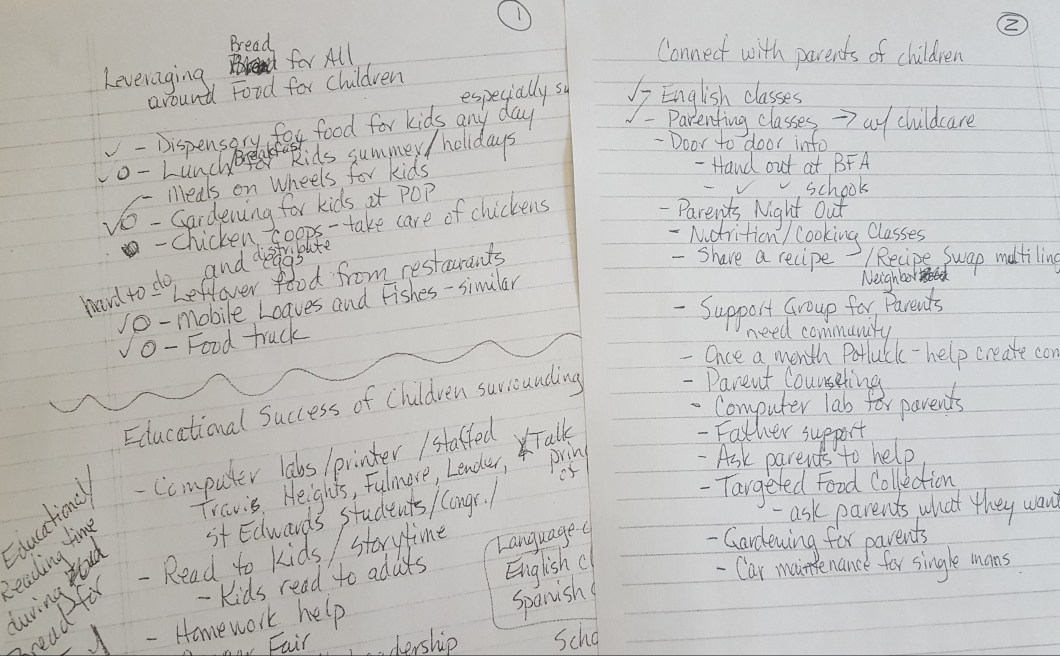 1
Bread
Leveraging Bread for All
around Food for Children
especially su
✓ - Dispensary for food for kids any day
Breakfast
✓ o - Lunch for kids summer/holidays
- Meals on Wheels for kids
✓ O - Gardening for kids at POP
- Chicken coops - take care of chickens
distribute
and eggs
hard to do - Leftover food from restaurants
✓ O - Mobile Loaves and Fishes - similar
✓ O - Food truck
Educational Success of Children surrounding
- Computer labs/printer/staffed
Travis Heights, Fulmore, Lender, Talk
prin
of
St Edwards students/Congr./
- Read to Kids/storytime
- Kids read to adults
- Homework help
Fair
dership
Educational/
Reading time
during
Bread for
Language-c
English cl
Spanish c
Scho
2
Connect with parents of children
✓ - English classes
✓ - Parenting classes → w/ childcare
- Door to door info
- Hand out at BFA
- ✓ ✓ schools
- Parents Night Out
- Nutrition/Cooking Classes
- Share a recipe - /Recipe Swap multiling
Neighbor
- Support Group for Parents
need community
- Once a month Potluck - help create com
- Parent Counseling
- Computer lab for parents
- Father support
- Ask parents to help
- Targeted Food Collection
- ask parents what they want
- Gardening for parents
- Car maintenance for single moms